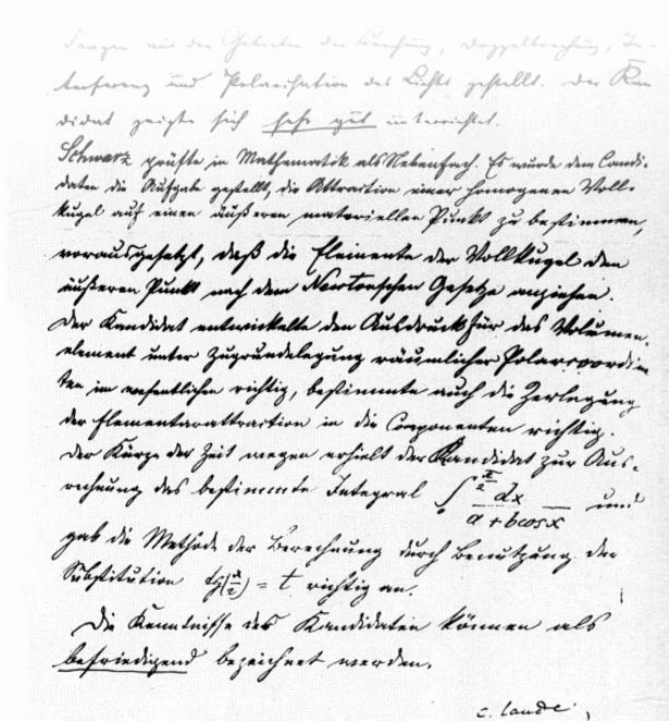 Fragen aus den Gebieten der Beugung, Doppelbrechung, In-
terferenz und Polarisation des Lichts gestellt. Der Kan
didat zeigte sich sehr gut unterrichtet.
Schwarz prüfte in Mathematik als Nebenfach. Es wurde dem Candi-
daten die Aufgabe gestellt, die Attraction einer homogenen Voll-
kugel auf einen äußeren materiellen Punkt zu bestimmen,
vorausgesetzt, daß die Elemente der Vollkugel den
äußeren Punkt nach dem Newtonschen Gesetze anziehen.
Der Kandidat entwickelte den Ausdruck für das Volumen-
element unter Zugrundelegung räumlicher Polarcoordina
ten im wesentlichen richtig, bestimmte auch die Zerlegung
der Elementarattraction in die Componenten richtig.
Der Kürze der Zeit wegen erhielt der Kandidat zur Aus-
rechnung das bestimmte Integral ∫₀^{π/2} dx / (a + b cos x) und
gab die Methode der Berechnung durch Benutzung der
Substitution tg(x/2) = t richtig an.
Die Kenntnisse des Kandidaten können als
befriedigend bezeichnet werden.